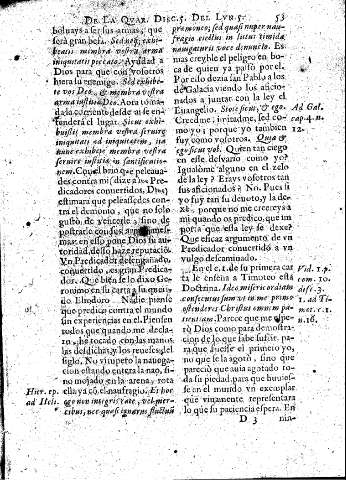 DE LA QVAR. DISC. 5. DEL LVN. 5. 53
bolvays a ser sus armas, que
será gran befa. Sed nec exhi-
beatis membra vestra arma
iniquitati peccato. Ayudad a
Dios para que con vosotros
hiera tu enemigo. Sed exhibe-
te vos Deo, & membra vestra
arma iustitiæ Deo. Aora toma-
da la corriente desde ai se en-
tenderá el lugar. Sicut exhi-
buistis membra vestra servire
iniquitati ad iniquitatem, ita
nunc exhibete membra vestra
servire iustitiæ in sanctificatio-
nem. Con el brio que peleaua-
des contra mi (dize a los Pre-
dicadores conuertidos, Dios)
estimara que peleasedes con-
tra el demonio, y que no solo
gustó de vencerle, sino de
postrarle con sus armas mes-
mas, en esso pone Dios su au-
toridad, desso haze reputació.
Vn Predicador desengañado,
conuertido, es gran Predica-
dor. Que bien se lo dixo Ge-
ronimo en su carta a su queri-
do Eliodoro. Nadie piense
que predico contra el mundo
sin experiencias en el. Piensen
todos que quando me decla-
ro, he tocado con las manos
las desdichas y los reueses del
siglo. No vitupero la nauega-
cion estando entera la nao, si-
no mojado en la arena y rota
ella ya có el naufragio. Et hoc
ego non integris rate, vel mer-
cibus, nec quasi ignarus fluctuũ
Hier. ep.
ad Heli.
præmoneo; sed quasi nuper nau-
fragio eiectus in littus timida
nauigaturis voce denuncio. Es
mas creyble el peligro en bo-
ca de quien ya passó por el.
Por esso dezia san Pablo a los
de Galacia viendo los aficio-
nados a juntar con la ley el
Euangelio. Sicut ego, & ego.
Creedme, imitadme, sed co-
mo yo; porque yo tambien
fuy como vosotros. Quia &
ego sicut vos. Quien tan ciego
en este desvario como yo?
Igualóme alguno en el zelo
de la ley? Erays vosotros tan
sus aficionados? No. Pues si
yo fuy tan su deuoto, y la de-
xé, porque no me creereys a
mi quando os predico, que im-
porta que essa ley se dexe?
Que eficaz argumento de vn
Predicador conuertido a vn
vulgo descaminado.
En el c.1. de su primera car
ta le enseña a Timoteo está
Dotrina. Ideo misericordiam
consecutus sum vt in me primo
ostenderet Christus omnem pa-
tientiam. Parece que me espe-
ró Dios como para demostra-
cion de lo que sabe sufrir. pa-
ra que fuesse el primero yo,
no que se la agotó, sino que
pareció que auia agotado to-
da su piedad, para que huuies-
se en el mundo vn exemplar
que viuamente representara
lo que su paciencia espera. En
Ad Gal.
cap. 4. n.
12.
Vid. 1. p.
com. 10.
disc. 3.
1. ad Ti-
mot. c. 1.
n. 16.
D 3 nin-